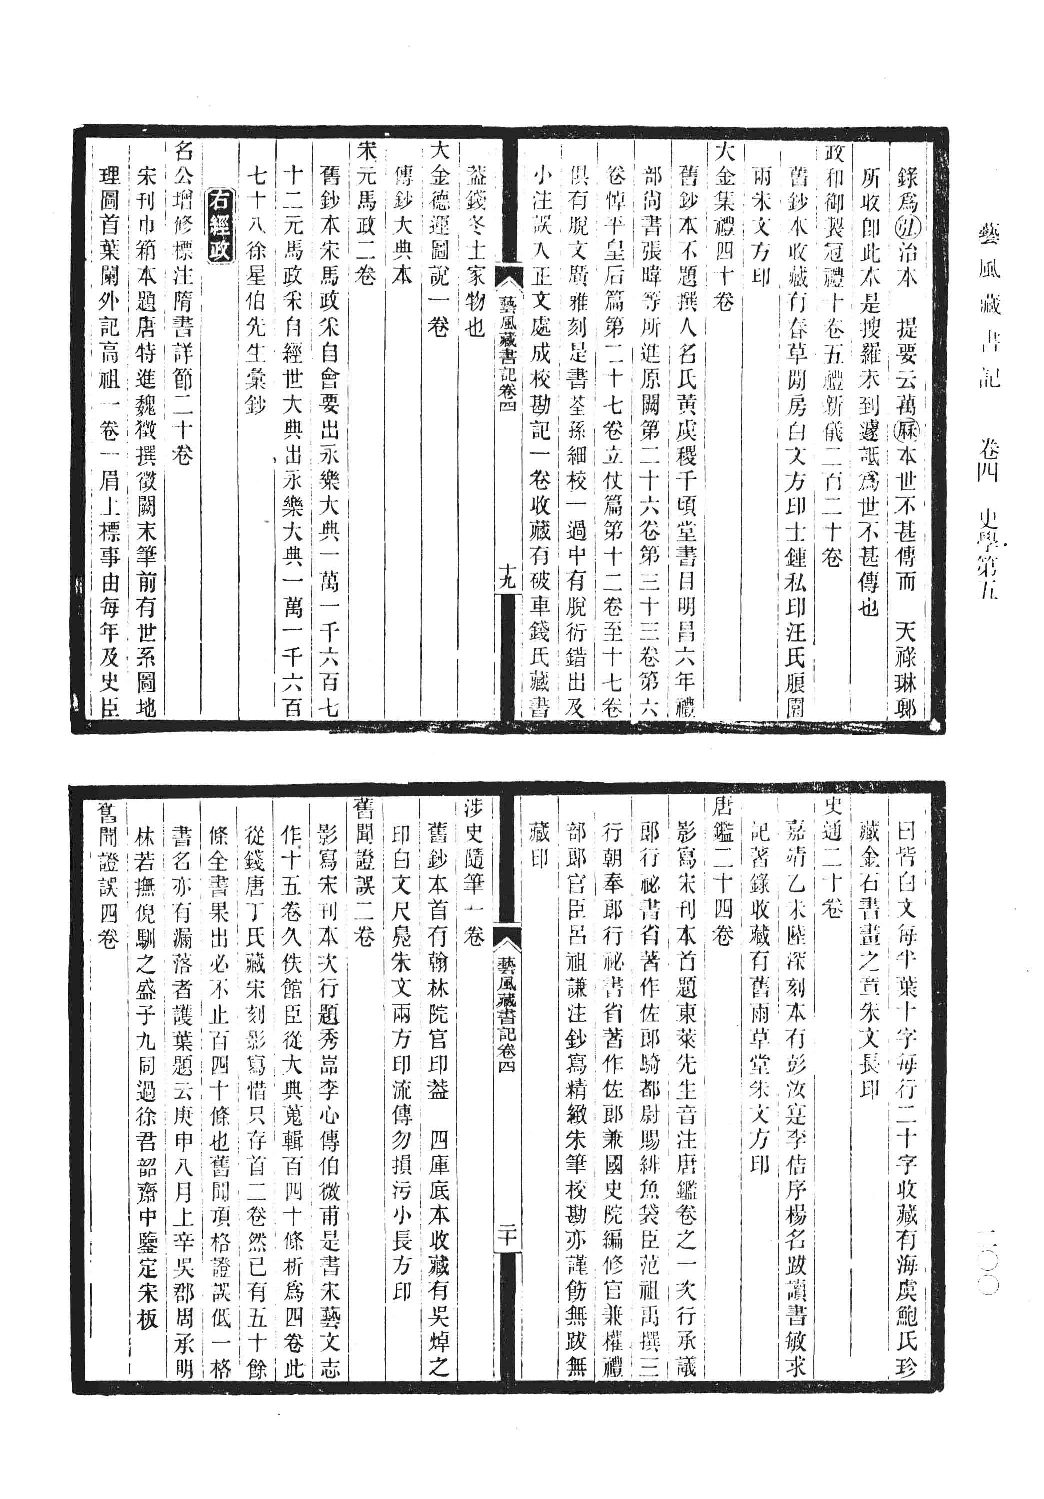 藝風藏書記 卷四 史學第五
一〇〇
錄爲弘治本 提要云萬厤本世不甚傳而 天祿琳瑯
所收卽此本是搜羅未到遽詆爲世不甚傳也
政和御製冠禮十卷五禮新儀二百二十卷
舊鈔本收藏有春草閒房白文方印士鍾私印汪氏
兩朱文方印
大金集禮四十卷
舊鈔本不題撰人名氏黃虞稷千頃堂書目明昌六年禮
部尚書張暐等所進原闕第二十六卷第三十三卷第六
卷悼平皇后篇第二十七卷立仗篇第十二卷至十七卷
俱有脫文廣雅刻是書荃孫細校一過中有脫衍錯出及
小注誤入正文處成校勘記一卷收藏有破車錢氏藏書
藝風藏書記卷四
十九
蓋錢冬士家物也
大金德運圖說一卷
傳鈔大典本
宋元馬政二卷
舊鈔本宋馬政采自會要出永樂大典一萬一千六百七
十二元馬政采自經世大典出永樂大典一萬一千六百
七十八徐星伯先生彙鈔
右經政
名公增修標注隋書詳節二十卷
宋刊巾箱本題唐特進魏徵撰徵闕末筆前有世系圖地
理圖首葉闌外記高祖一卷一眉上標事由每年及史臣
曰皆白文每半葉十字每行二十字收藏有海虞鮑氏珍
藏金石書畫之章朱文長印
史通二十卷
嘉靖乙未陸深刻本有彭汝寔李佶序楊名跋讀書敏求
記著錄收藏有舊雨草堂朱文方印
唐鑑二十四卷
影寫宋刊本首題東萊先生音注唐鑑卷之一次行承議
郎行祕書省著作佐郎騎都尉賜緋魚袋臣范祖禹撰三
行朝奉郎行祕書省著作佐郎兼國史院編修官兼權禮
部郎官臣呂祖謙注鈔寫精緻朱筆校勘亦謹飭無跋無
藏印
藝風藏書記卷四
二十
涉史隨筆一卷
舊鈔本首有翰林院官印蓋 四庫底本收藏有吳焯之
印白文尺鳧朱文兩方印流傳勿損污小長方印
舊聞證誤二卷
影寫宋刊本次行題秀嵓李心傳伯微甫是書宋藝文志
作十五卷久佚館臣從大典蒐輯百四十條析爲四卷此
從錢唐丁氏藏宋刻影寫惜只存首二卷然已有五十餘
條全書果出必不止百四十條也舊聞頂格證誤低一格
書名亦有漏落者護葉題云庚申八月上辛吳郡周承明
林若撫倪馴之盛子九同過徐君韶齋中鑒定宋板
舊聞證誤四卷